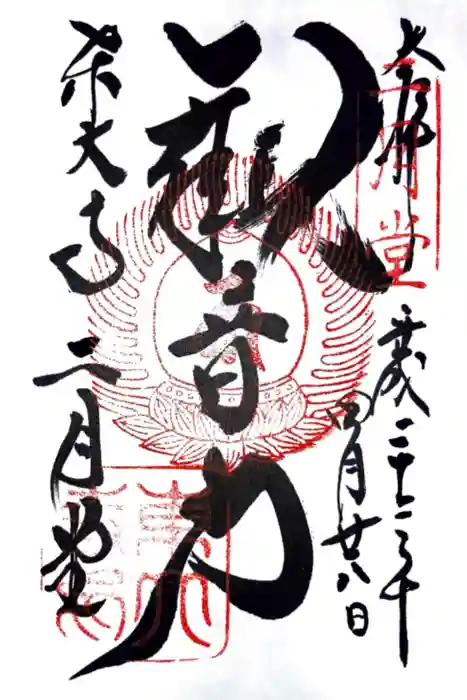 奉拝
二月堂
平成二十二年
四月廿八日
観音力
東大寺
二月堂